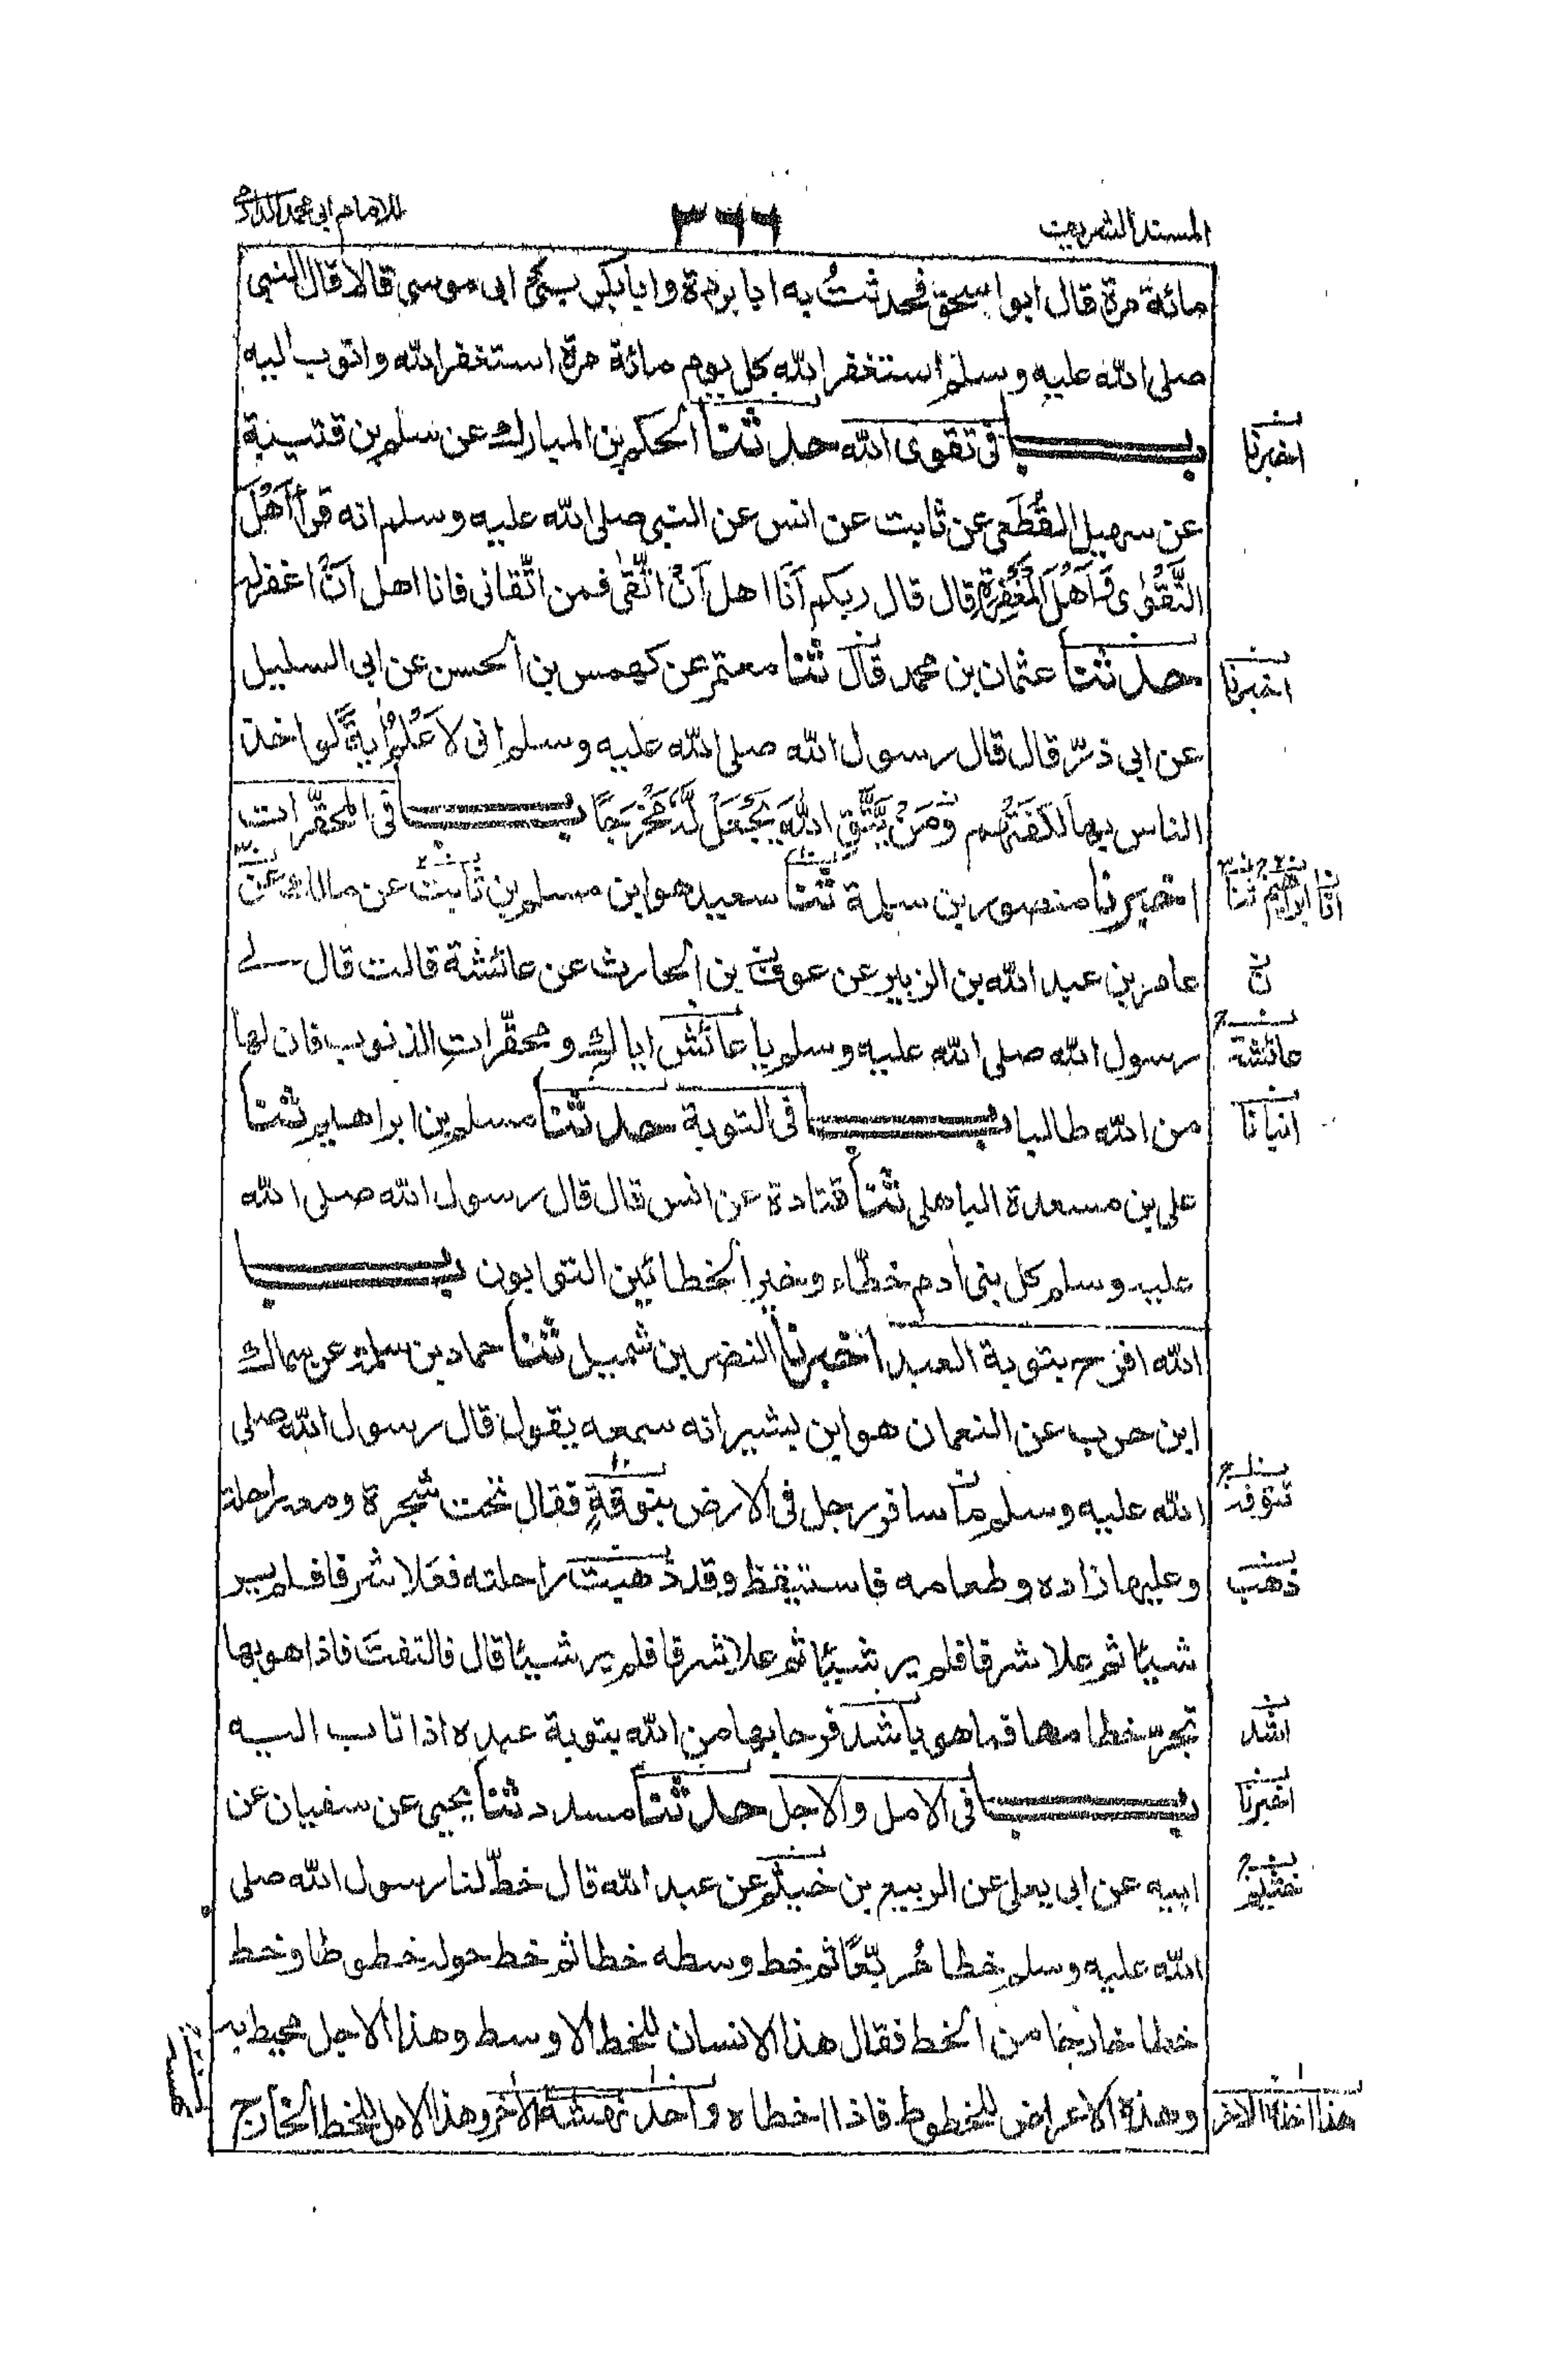 المسند الشريف
٣٦٦
للامام ابى محمد الدارمى
مائة مرة قال ابو اسحق فحدثتُ به ابا بردة وابا بكر بنى ابى موسى قالا قال النبى
صلى الله عليه وسلم استغفر الله كل يوم مائة مرة استغفر الله واتوب اليه
باب فى تقوى الله حدثنا الحكم بن المبارك عن سلم بن قتيبة
اخبرنا
عن سهيل القُطَعى عن ثابت عن انس عن النبى صلى الله عليه وسلم انه قرأ اَهْلُ
التَّقْوٰى وَاَهْلُ الْمَغْفِرَةِ قال قال ربكم اَنَا اهل اَنْ اُتَّقٰى فمن اتَّقانى فانا اهل اَنْ اغفر له
حدثنا عثمان بن محمد قال ثنا معتمر عن كهمس بن الحسن عن ابى السليل
اخبرنا
عن ابى ذرّ قال قال رسول الله صلى الله عليه وسلم انى لاَعْلَمُ اٰيةً لو اخذ
الناس بها لَكَفَتْهُم وَمَنْ يَّتَّقِ اللّٰهَ يَجْعَلْ لَّهٗ مَخْرَجًا باب فى المحقّرات
اخبرنا منصور بن سلمة ثنا سعيد هو ابن مسلم بن ثابت عن مالك عن
انا ابراهيم ثنا
عامر بن عبد الله بن الزبير عن عوف بن الحارث عن عائشة قالت قال لى
رسول الله صلى الله عليه وسلم يا عائش اياكِ ومحقّراتِ الذنوب فان لها
عائشة
من الله طالبا باب فى التوبة حدثنا مسلم بن ابراهيم ثنا
انبانا
على بن مسعدة الباهلى ثنا قتادة عن انس قال قال رسول الله صلى الله
عليه وسلم كل بنى اٰدم خطّاء وخير الخطائين التوابون باب
الله افرح بتوبة العبد اخبرنا النضر بن شميل ثنا حماد بن سلمة عن سماك
ابن حرب عن النعمان هو ابن بشير انه سمعه يقول قال رسول الله صلى
الله عليه وسلم ما سافر رجل فى الارض بتنوفةٍ فقال تحت شجرة ومعه راحلة
تنوفه
وعليها زاده وطعامه فاستيقظ وقد ذهبت راحلته فعَلا شرفا فلم ير
ذهب
شيئا ثم علا شرفا فلم ير شيئا ثم علا شرفا فلم ير شيئا قال فالتفتَ فاذا هو بها
تجرّ خطامها فما هو باشد فرحا بها من الله بتوبة عبده اذا تاب اليه
اشد
باب فى الامل والاجل حدثنا مسدد ثنا يحيى عن سفيان عن
اخبرنا
ابيه عن ابى يعلى عن الربيع بن خيثم عن عبد الله قال خطّ لنا رسول الله صلى
خثيم
الله عليه وسلم خطا مُربّعًا ثم خط وسطه خطا ثم خط حوله خطوطا وخط
خطا خارجا من الخط فقال هذا الانسان للخط الاوسط وهذا الاجل محيط به
وهذه الاعراض للخطوط فاذا اخطاه واحد نهشه الاخر وهذا الامل للخط الخارج